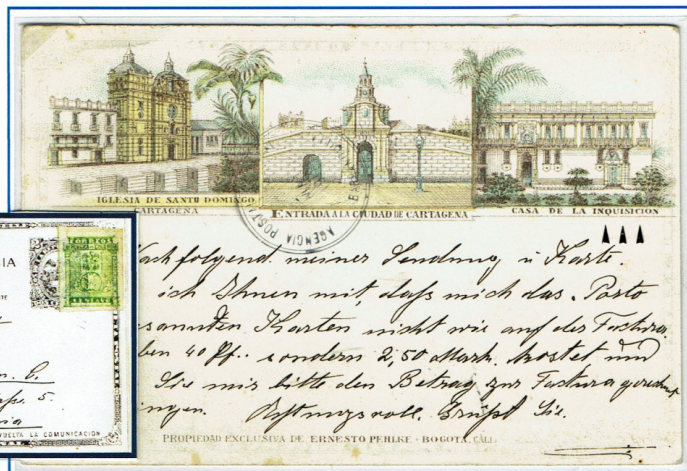 IGLESIA DE SANTO DOMINGO
CARTAGENA
ENTRADA A LA CIUDAD DE CARTAGENA
CASA DE LA INQUISICION
AGENCIA POSTAL
CORREOS
CENTAVO
Nachfolgend meiner Sendung u Karte
ich Ihnen mit, daß mich das Porto
Karten nicht wie auf der Factura
40 Pf. sondern 2,50 Mark kostet und
Sie mir bitte den Betrag zur Factura
Achtungsvoll Grüßt Sie
VUELTA LA COMUNICACION
PROPIEDAD EXCLUSIVA DE ERNESTO PEHLKE - BOGOTA, CALI